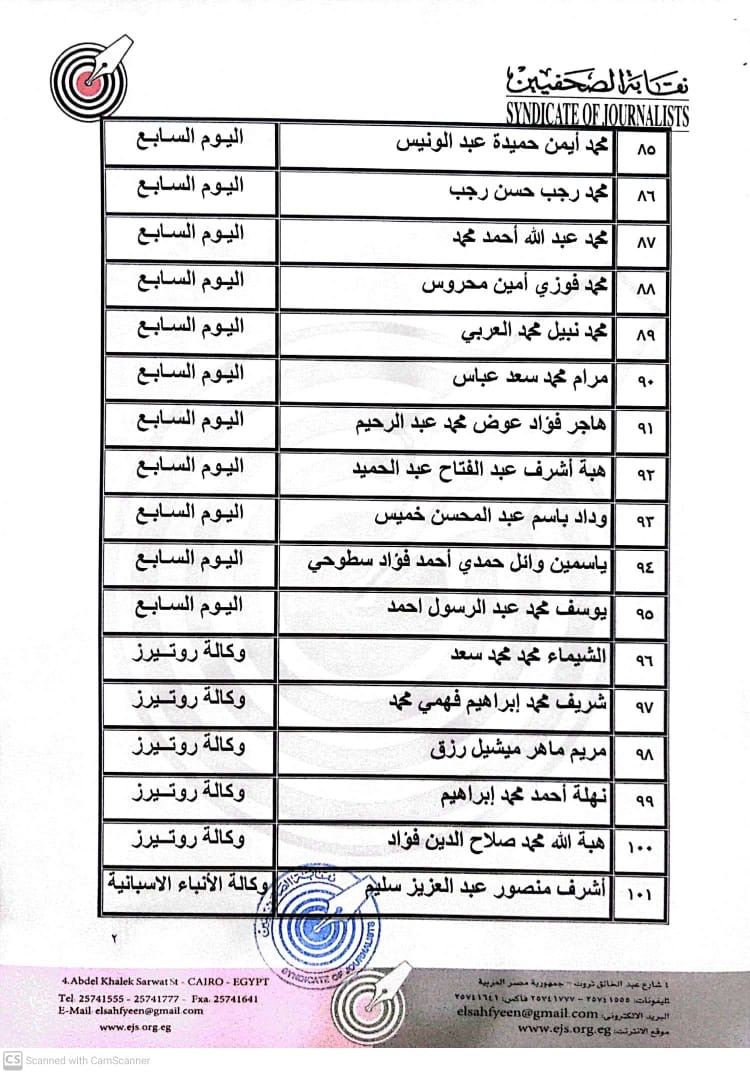 نقابة الصحفيين
SYNDICATE OF JOURNALISTS
٨٥ محمد أيمن حميدة عبد الونيس اليوم السابع
٨٦ محمد رجب حسن رجب اليوم السابع
٨٧ محمد عبد الله أحمد محمد اليوم السابع
٨٨ محمد فوزي أمين محروس اليوم السابع
٨٩ محمد نبيل محمد العربي اليوم السابع
٩٠ مرام محمد سعد عباس اليوم السابع
٩١ هاجر فؤاد عوض محمد عبد الرحيم اليوم السابع
٩٢ هبة أشرف عبد الفتاح عبد الحميد اليوم السابع
٩٣ وداد باسم عبد المحسن خميس اليوم السابع
٩٤ ياسمين وائل حمدي أحمد فؤاد سطوحي اليوم السابع
٩٥ يوسف محمد عبد الرسول احمد اليوم السابع
٩٦ الشيماء محمد محمد سعد وكالة روتيرز
٩٧ شريف محمد إبراهيم فهمي محمد وكالة روتيرز
٩٨ مريم ماهر ميشيل رزق وكالة روتيرز
٩٩ نهلة أحمد محمد إبراهيم وكالة روتيرز
١٠٠ هبة الله محمد صلاح الدين فؤاد وكالة روتيرز
١٠١ أشرف منصور عبد العزيز سليم وكالة الأنباء الاسبانية
نقابة الصحفيين
SYNDICATE OF JOURNALISTS
٢
٤ شارع عبد الخالق ثروت - جمهورية مصر العربية
تليفونات: ٢٥٧٤١٥٥٥ - ٢٥٧٤١٧٧٧ فاكس: ٢٥٧٤١٦٤١
البريد الالكتروني: elsahfyeen@gmail.com
موقع الانترنت: www.ejs.org.eg
4.Abdel Khalek Sarwat St - CAIRO - EGYPT
Tel: 25741555 - 25741777 - Fxa. 25741641
E-Mail: elsahfyeen@gmail.com
www.ejs.org.eg
CS Scanned with CamScanner